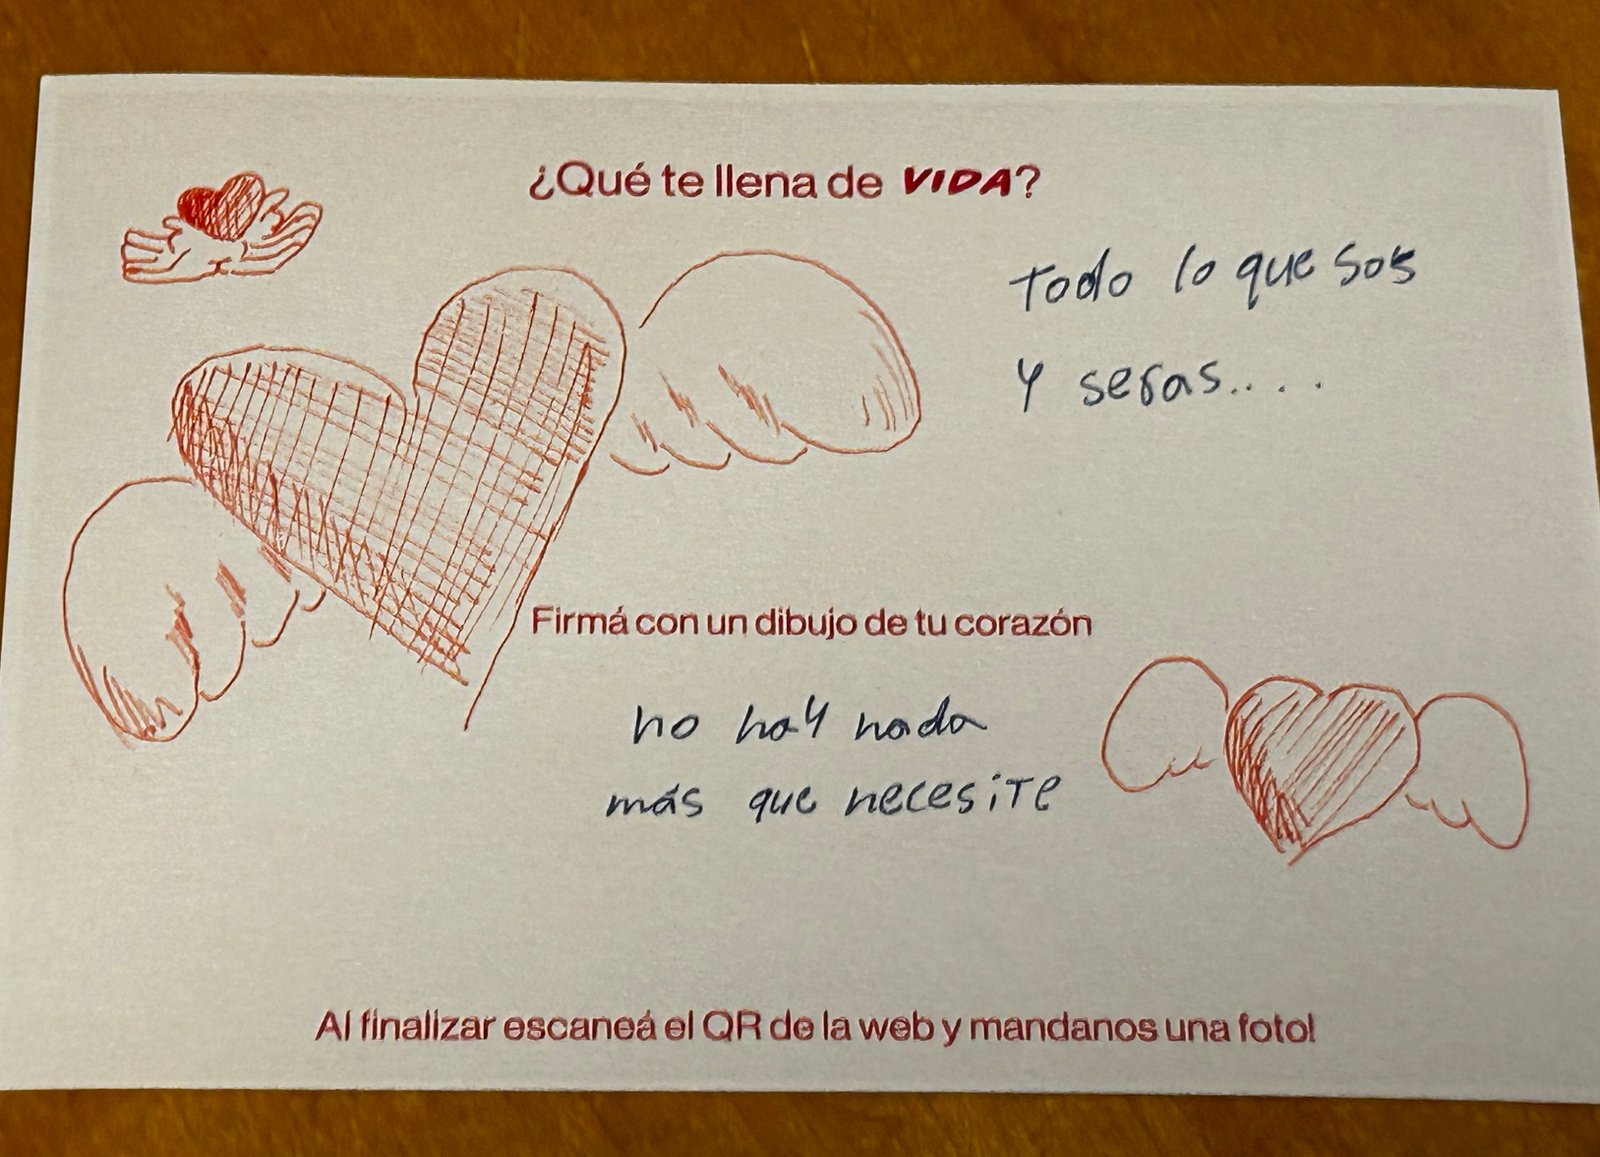 ¿Qué te llena de VIDA?
Todo lo que sos
Y seras....
Firmá con un dibujo de tu corazón
no hay nada
más que necesite
Al finalizar escaneá el QR de la web y mandanos una foto!